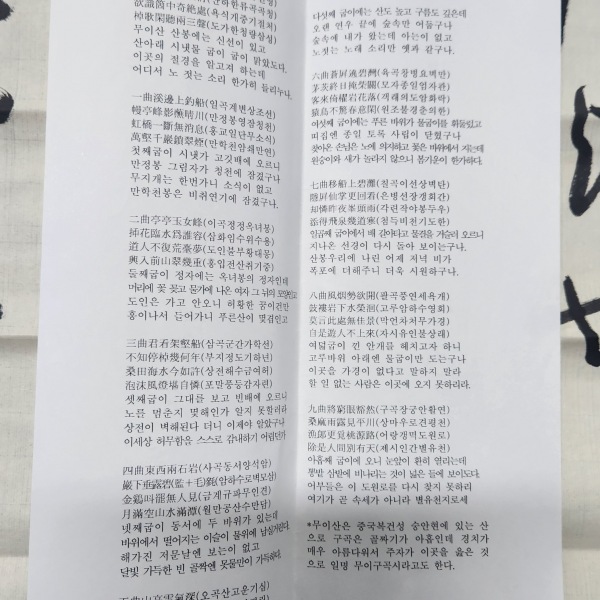 欲識箇中奇絶處(욕식기중기절처)
棹歌閑聽兩三聲(도가한청량삼성)
무이산 산부에는 신선이 있고
산아래 시냇물 굽이 굽이 맑았도다.
이곳의 절경을 알고져 하는데
어디서 노 젓는 소리 한가히 들리누나.
一曲溪邊上釣船(일곡계변상조선)
幔亭峰影蘸晴川(만정봉영잠청천)
虹橋一斷無消息(홍교일단무소식)
萬壑千巖鎖翠煙(만학천암쇄만연)
첫째굽이 시냇가 고깃배에 오르니
만정봉 그림자가 청천에 잠겼구나
무지개는 한번가니 소식이 없고
만학천봉은 비취연기에 잠겼구나.
二曲亭亭玉女峰(이곡정정옥녀봉)
揷花臨水爲誰容(삽화임수위수용)
道人不復荒臺夢(도인불부황대몽)
興入前山翠幾重(흥입전산취기중)
둘째굽이 정자에는 옥녀봉의 정자인데
머리에 꽃 꽂고 물가에 나온 여자 그 뉘의 모양인고
도인은 가고 안오니 허황한 꿈이건만
흥이나서 들어가니 푸른산이 몇겹인고
三曲君看架壑船(삼곡군간가학선)
不知停棹幾何年(부지정도기하년)
桑田海水今如許(상전해수금여허)
泡沫風燈堪自憐(포말풍등감자련)
셋째굽이 그대를 보고 빈배에 오르니
노를 멈춘지 몇해인가 알지 못할러라
상전이 벽해된다 더니 이제야 알았구나
이세상 허무함을 스스로 감내하기 어렵던가
四曲東西兩石岩(사곡동서양석암)
巖下垂露碧(監+毛)㲯(암하수로벽모삼)
金鷄叫罷無人見(금계규파무인견)
月滿空山水滿潭(월만공산수만담)
넷째굽이 동서에 두 바위가 있는데
바위에서 떨어지는 이슬이 물위에 남실거린다.
해가진 저문날엔 보는이 없고
달빛 가득한 빈 골짝엔 못물만이 가득하다.
五曲山高雲氣深(오곡산고운기심)
다섯째 굽이에는 산도 높고 구름도 깊은데
오랜 연우 끝에 숲속만 어둡구나
숲속에 내가 왔는데 아는이 없고
노젓는 노래 소리만 옛과 같구나.
六曲蒼屛遶碧灣(육곡창병요벽만)
茅茨終日掩柴關(모자종일엄자관)
客來倚櫂岩花落(객래의도암화락)
猿鳥不驚春意閑(원조불경춘의한)
여섯째 굽이에는 푸른 바위가 물굽이를 휘둘렀고
띠집엔 종일 토록 사립이 닫혔구나
찾아온 손님은 노에 의지하고 꽃은 바위에서 지는데
원숭이와 새가 놀라지 않으니 봄기운이 한가하다.
七曲移船上碧灘(칠곡이선상벽탄)
隱屛仙掌更回看(은병선장갱회간)
却憐昨夜峯頭雨(각련작야봉두우)
添得飛泉幾道寒(첨득비천기도한)
일곱째 굽이에서 배 갈아타고 물결을 가슬러 오르니
지나온 선경이 다시 돌아 보이는구나.
산봉우리에 나린 어제 저녁 비가
폭포에 더해주니 더욱 시원하구나.
八曲風烟勢欲開(팔곡풍연세욕개)
鼓樓岩下水縈洄(고루암하수영회)
莫言此處無佳景(막언차처무가경)
自是遊人不上來(자시유인불상래)
여덟굽이 낀 안개를 헤치고자 하니
고루바위 아래엔 물굽이만 도는구나
이곳을 가경이 없다고 말하지 말라
할 일 없는 사람은 이곳에 오지 못하리라.
九曲將窮眼豁然(구곡장궁안활연)
桑麻雨露見平川(상마우로견평천)
漁郞更覓桃源路(어랑갱멱도원로)
除是人間別有天(제시인간별유천)
아홉째 굽이에 오니 눈앞이 환히 열리는데
뽕밭 삼밭에 비나리는 것이 넓은 들에 보이도다.
어부들은 이 도원로를 다시 찾지 못하리
여기가 곧 속세가 아니라 별유천지로세
*무이산은 중국복건성 숭안현에 있는 산
으로 구곡은 골짜기가 아홉인데 경치가
매우 아름다워서 주자가 이곳을 읊은 것
으로 일명 무이구곡시라고도 한다.